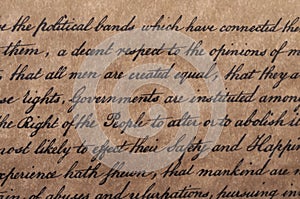 e the political bands which have connected them
them, a decent respect to the opinions of m
, that all men are created equal, that they a
se rights, Governments are instituted among
the Right of the People to alter or to abolish it
most likely to effect their Safety and Happin
xperience hath shewn, that mankind are m
in of abuses and usurpations, pursuing in